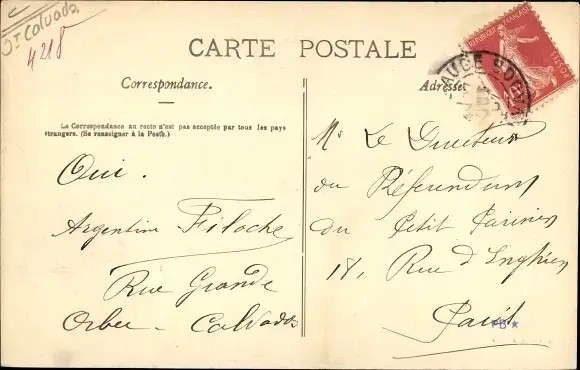 Dt Calvados
4218
CARTE POSTALE
Correspondance.
La Correspondance au recto n'est pas acceptée par tous les pays
étrangers. (Se renseigner à la Poste.)
Oui.
Argentine Filoche
Rue Grande
Orbec - Calvados
Adresse
REPUBLIQUE FRANÇAISE
POSTES
Mr Le Directeur
du Référendum
du Petit Parisien
18, Rue d'Enghien
Paris
PB ★